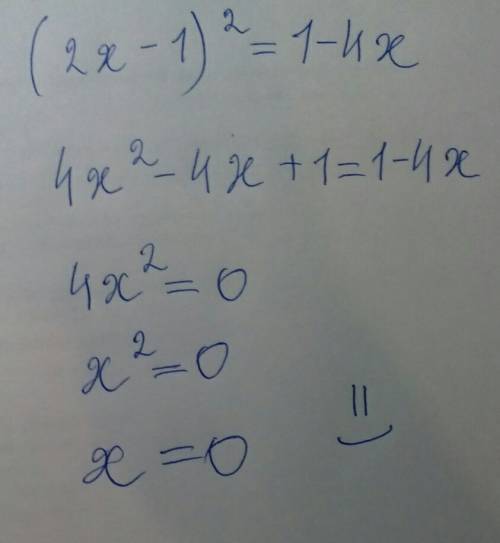 (2x - 1)² = 1 - 4x
4x² - 4x + 1 = 1 - 4x
4x² = 0
x² = 0
x = 0